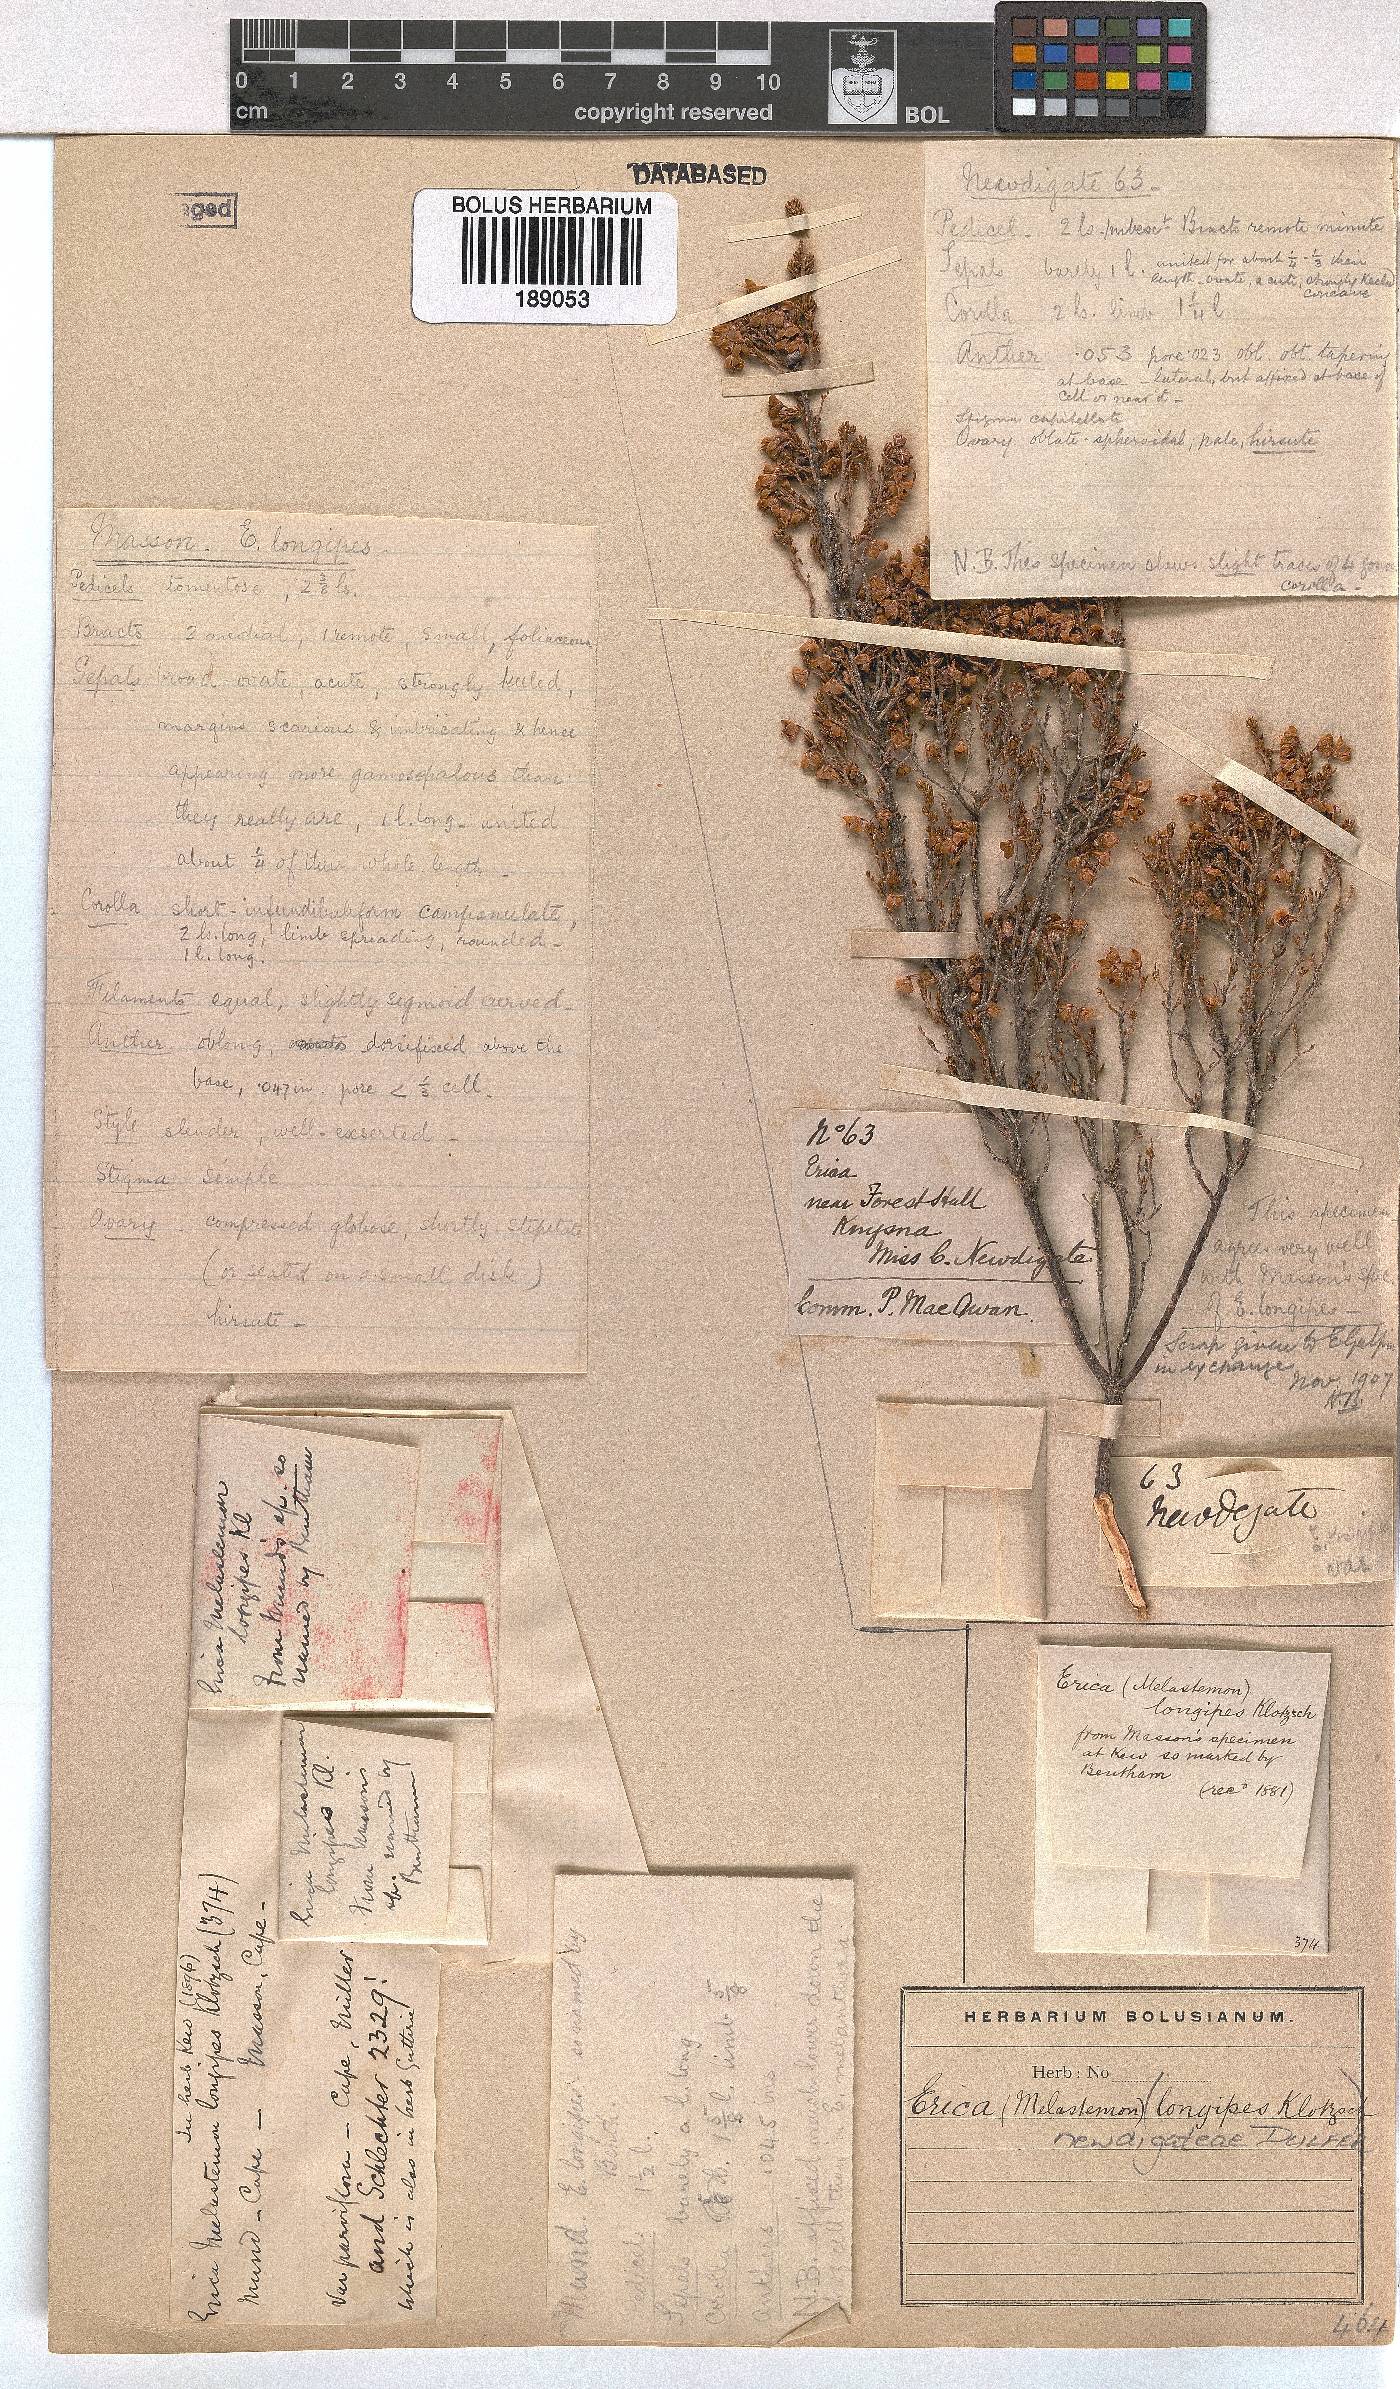 0 1 2 3 4 5 6 7 8 9 10
cm
copyright reserved
BOL
DATABASED
BOLUS HERBARIUM
189053
Newdigate 63 -
Pedicel - 2 ls. pubesct Bracts remote minute
Sepals barely 1 l. united for about 1/4 - 1/3 their
length - ovate, acute, strongly keeled
concave
Corolla 2 ls. limb 1 1/4 l
Anther ·053 pore ·023 obl. obt. tapering
at base - lateral, but affixed at base of
cell or near it -
Stigma capitellate
Ovary oblate-spheroidal, pale, hirsute
N.B. This specimen shews slight traces of 4 fova
corolla -
Masson. E. longipes
Pedicels tomentose, 2 3/8 ls.
Bracts 2 medial, 1 remote, small, foliaceous
Sepals broad-ovate, acute, strongly keeled,
margins scarious & imbricating & hence
appearing more gamosepalous than
they really are, 1 l. long - united
about 1/4 of their whole length -
Corolla short-infundibuliform campanulate,
2 ls. long, limb spreading, rounded -
1 l. long.
Filaments equal, slightly sigmoid curved -
Anther oblong, dorsifixed above the
base, ·047 in. pore < 1/3 cell.
Style slender, well-exserted -
Stigma simple
Ovary compressed globose, shortly stipitate
(or seated on a small disk)
hirsute -
No 63
Erica
near Forest Hall
Knysna
Miss C. Newdigate
Comm. P. MacOwan.
This specimen
agrees very well
with Masson's spec
of E. longipes -
Scrap given to E Galpin
in exchange
Nov. 1907
N.B.
63
Newdegate
var
Erica Melastemon
longipes Kl
from Mund's sp. so
named by Bentham
Erica Melastemon
longipes Kl.
from Masson's
sp. named by
Bentham!
In herb Kew (1896)
Erica Melastemon longipes Klotzsch (374)
Mund - Cape - Masson, Cape -
Var parviflora - Cape, Müller
and Schlechter 2329!
which is also in herb Guthrie
Mund. E. longipes so named by
Pedicels 1 1/2 l.
Sepals barely a l. long
Corolla 1 5/8 l. limb 5/8
Anthers ·045 ins
N.B. affixed lower down the
Erica (Melastemon)
longipes Klotzsch
from Masson's specimen
at Kew so marked by
Bentham
(recd 1881)
374
HERBARIUM BOLUSIANUM.
Herb: No
Erica (Melastemon) (longipes Klotzsch)
newdigateae DULFER
464